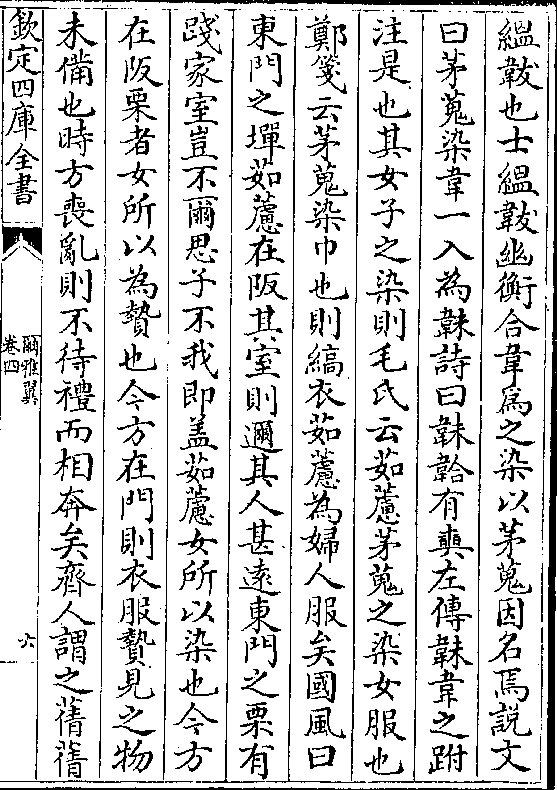 縕韍也士縕韍幽衡合韋爲之染以茅蒐因名焉説文
曰茅蒐染韋一入為韎詩曰韎韐有奭左傳韎韋之跗
注是也其女子之染則毛氏云茹藘茅蒐之染女服也
鄭箋云茅蒐染巾也則縞衣茹藘為婦人服矣國風曰
東門之墠茹藘在阪其室則邇其人甚逺東門之栗有
踐家室豈不爾思子不我即盖茹藘女所以染也今方
在阪栗者女所以為贄也今方在門則衣服贄見之物
未備也時方喪亂則不待禮而相奔矣齊人謂之蒨蒨
欽定四庫全書
爾雅翼
卷四
六